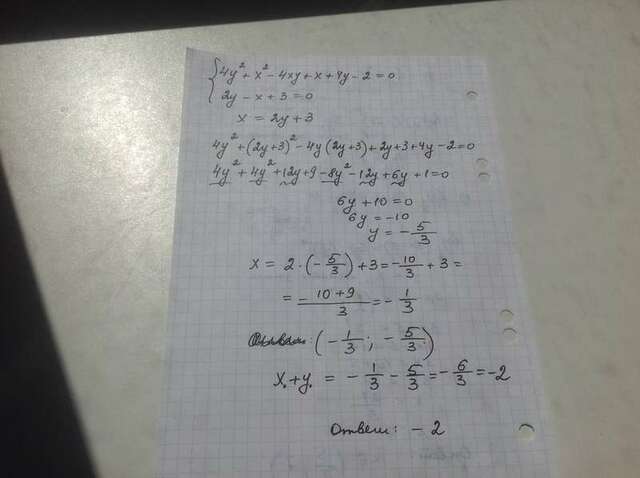 {4y² + x² - 4xy + x + 4y - 2 = 0
2y - x + 3 = 0
x = 2y + 3
4y² + (2y+3)² - 4y(2y+3) + 2y + 3 + 4y - 2 = 0
4y² + 4y² + 12y + 9 - 8y² - 12y + 6y + 1 = 0
6y + 10 = 0
6y = -10
y = - 5/3
x = 2 · (- 5/3) + 3 = -10/3 + 3 =
= (- 10 + 9)/3 = - 1/3
(- 1/3 ; - 5/3)
x₀ + y₀ = - 1/3 - 5/3 = - 6/3 = -2
Ответ: - 2